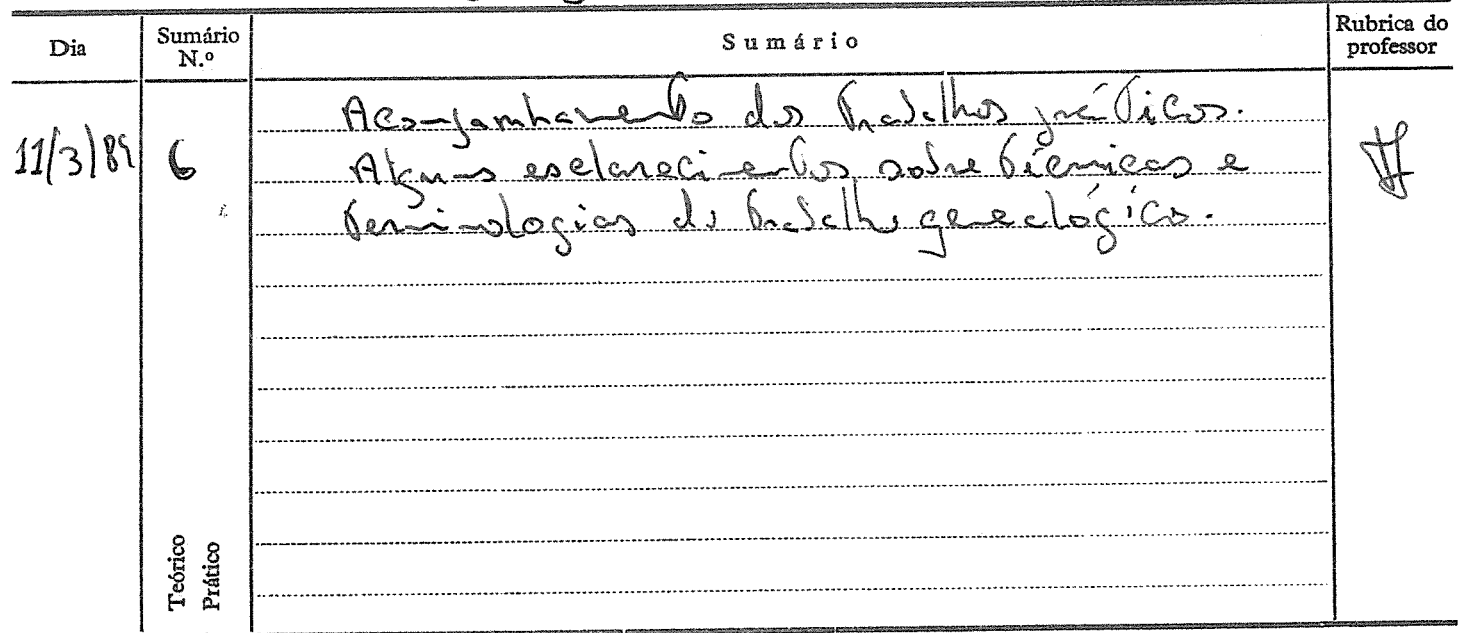 Dia
Sumário
N.º
Sumário
Rubrica do
professor
11/3/89
6
Acompanhamento dos trabalhos práticos.
Alguns esclarecimentos sobre técnicas e
terminologias do trabalho genealógico.
Teórico
Prático